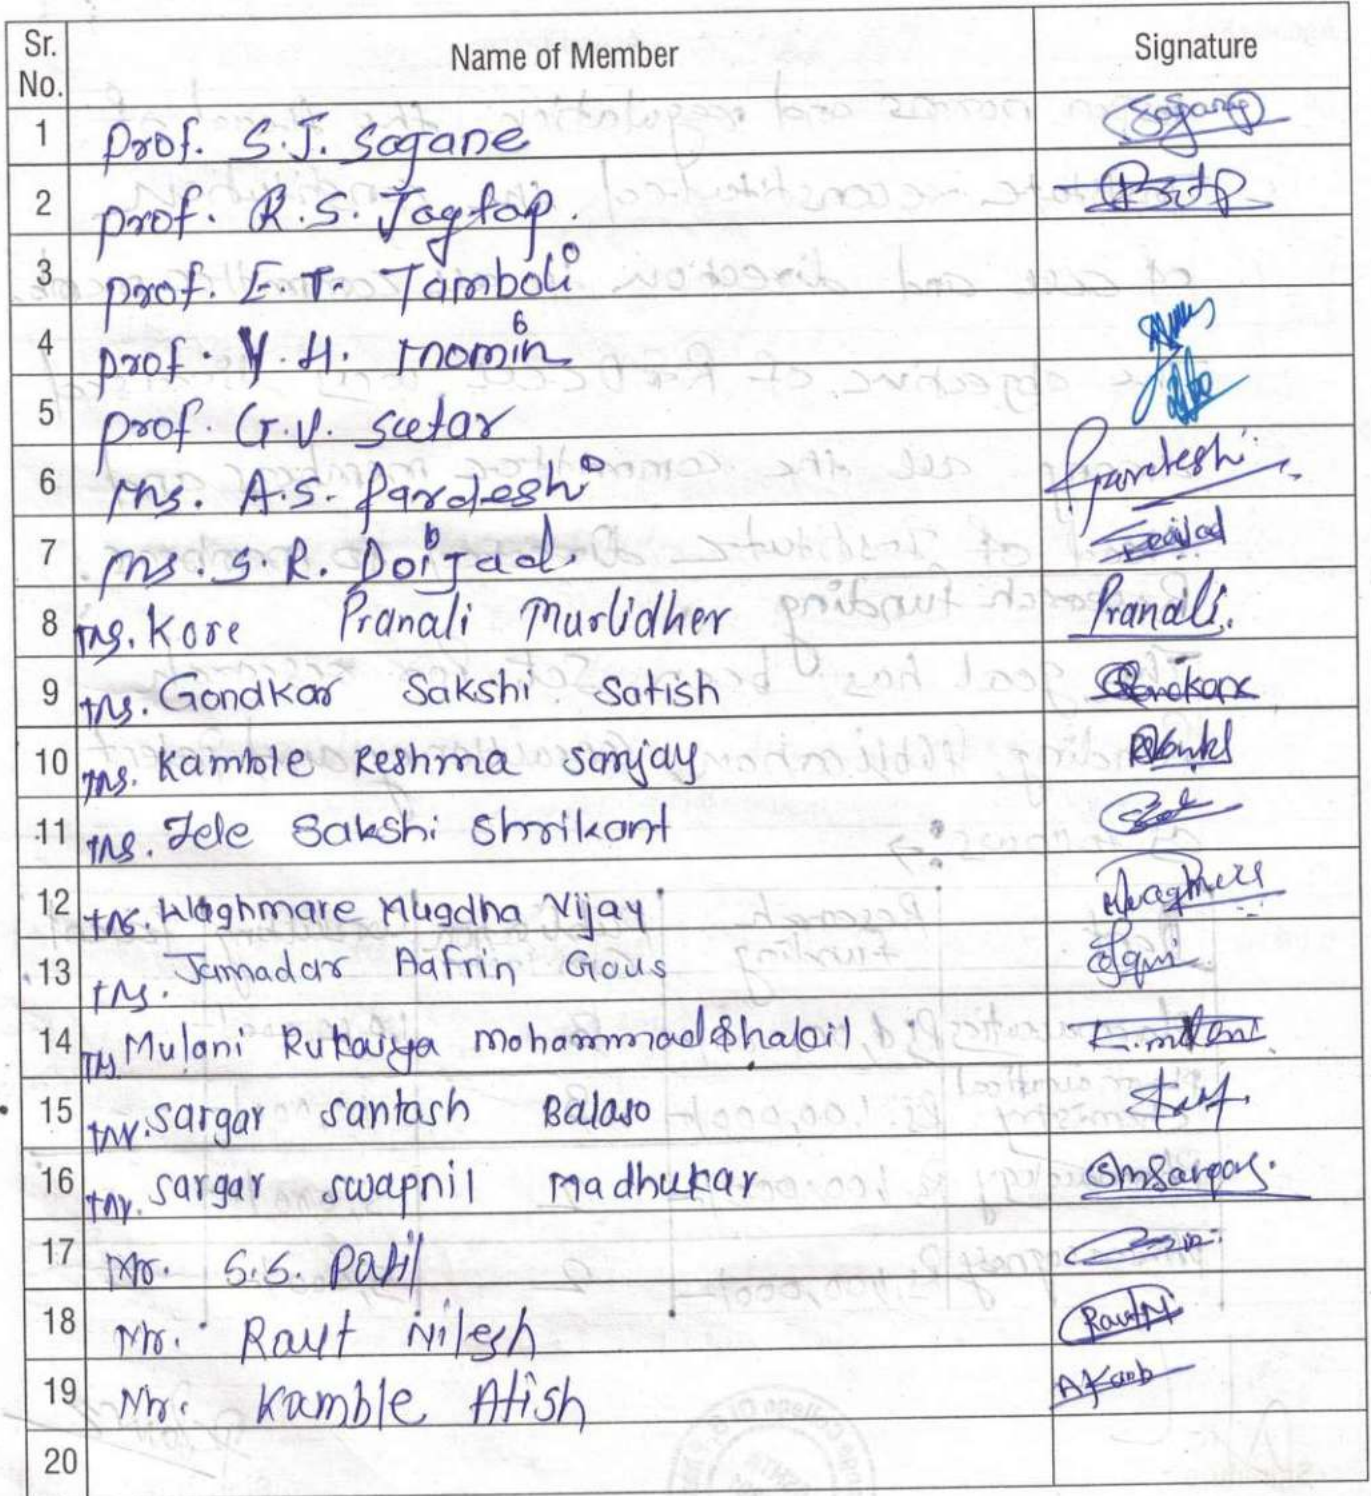 Sr. No. Name of Member Signature
1 Prof. S.J. Sagane
2 prof. R.S. Jagtap.
3 prof. E.T. Tamboli
4 prof. Y.H. momin
5 prof. G.V. sutar
6 Ms. A.S. Pardeshi Pardeshi
7 Ms. S.R. Doijad.
8 Ms. Kore Pranali Murlidher Pranali.
9 Ms. Gondkar Sakshi Satish
10 Ms. Kamble Reshma Sanjay
11 Ms. Jele Sakshi Shrikant
12 Ms. Waghmare Mugdha Vijay
13 Ms. Jamadar Aafrin Gous
14 Ms. Mulani Rukaiya Mohammadshakil
15 Mr. Sargar Santosh Balaso
16 Mr. Sargar swapnil Madhukar SMSargar.
17 Mr. S.S. Patil
18 Mr. Raut Nilesh RautN
19 Mr. Kamble Atish
20